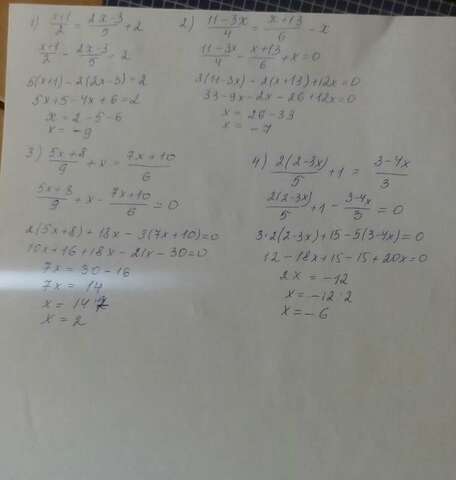 1) \frac{x+1}{2} = \frac{2x-3}{5} + 2
\frac{x+1}{2} - \frac{2x-3}{5} = 2
5(x+1) - 2(2x-3) = 2
5x+5-4x+6=2
x = 2-5-6
x = -9
2) \frac{11-3x}{4} = \frac{x+13}{6} - x
\frac{11-3x}{4} - \frac{x+13}{6} + x = 0
3(11-3x) - 2(x+13) + 12x = 0
33-9x-2x-26+12x=0
x = 26-33
x = -7
3) \frac{5x+8}{9} + x = \frac{7x+10}{6}
\frac{5x+8}{9} + x - \frac{7x+10}{6} = 0
2(5x+8) + 18x - 3(7x+10) = 0
10x+16+18x-21x-30=0
7x = 30-16
7x = 14
x = 14:7
x = 2
4) \frac{2(2-3x)}{5} + 1 = \frac{3-4x}{3}
\frac{2(2-3x)}{5} + 1 - \frac{3-4x}{3} = 0
3·2(2-3x)+15-5(3-4x)=0
12-18x+15-15+20x=0
2x = -12
x = -12:2
x = -6